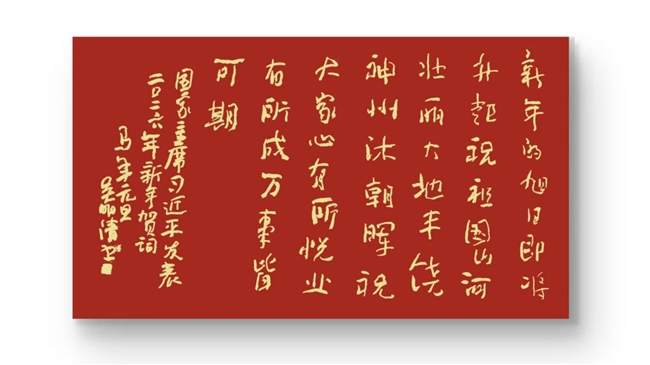 新年的旭日即将
升起祝祖国山河
壮丽大地丰饶
神州沐朝晖祝
大家心有所悦业
有所成万事皆
可期
国家主席习近平发表
二〇二六年新年贺词
马年元旦